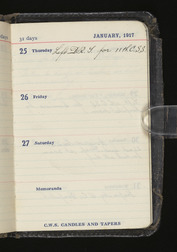 31 days
JANUARY, 1917
25 Thursday Left
for
26 Friday
27 Saturday
Memoranda
C.W.S. CANDLES AND TAPERS